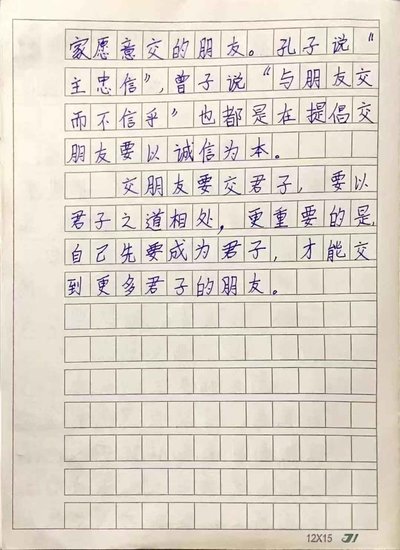 家愿意交的朋友。孔子说“
主忠信”，曾子说“与朋友交
而不信乎”也都是在提倡交
朋友要以诚信为本。
交朋友要交君子，要以
君子之道相处，更重要的是，
自己先要成为君子，才能交
到更多君子的朋友。
12X15